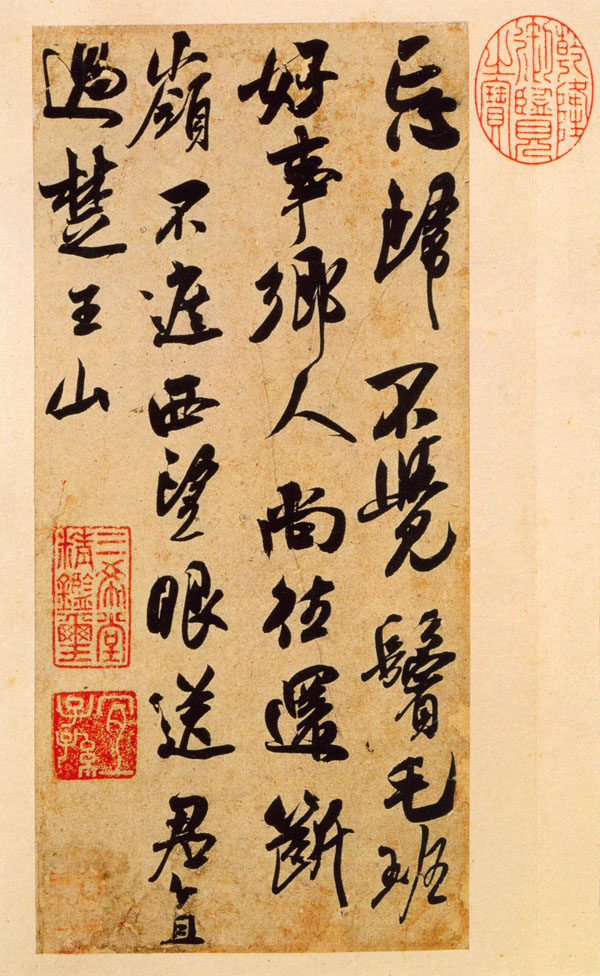 乾隆
御覽
之寶
忘歸不覺鬢毛班
好事鄉人尚往還斷
嶺不遮西望眼送君直
過楚王山
三希堂
精鑑璽
宜
子孫